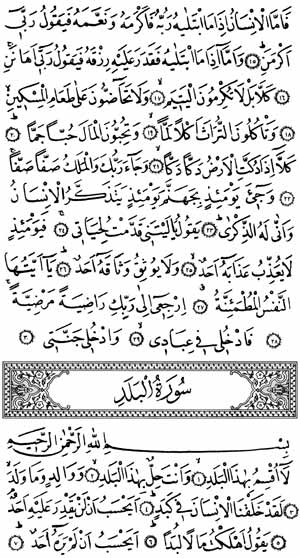 فَاَمَّا الْاِنْسَانُ اِذَا مَا ابْتَلٰيهُ رَبُّهُ فَاَكْرَمَهُ وَنَعَّمَهُ فَيَقُولُ رَبّ۪ٓي
اَكْرَمَنِ ﴿١٥﴾ وَاَمَّٓا اِذَا مَا ابْتَلٰيهُ فَقَدَرَ عَلَيْهِ رِزْقَهُ فَيَقُولُ رَبّ۪ٓي اَهَانَنِ
﴿١٦﴾ كَلَّا بَلْ لَا تُكْرِمُونَ الْيَت۪يمَ ﴿١٧﴾ وَلَا تَحَٓاضُّونَ عَلٰى طَعَامِ الْمِسْك۪ينِ
﴿١٨﴾ وَتَأْكُلُونَ التُّرَاثَ اَكْلًا لَمًّا ﴿١٩﴾ وَتُحِبُّونَ الْمَالَ حُبًّا جَمًّا ﴿٢٠﴾
كَلَّٓا اِذَا دُكَّتِ الْاَرْضُ دَكًّا دَكًّا ﴿٢١﴾ وَجَٓاءَ رَبُّكَ وَالْمَلَكُ صَفًّا صَفًّا
﴿٢٢﴾ وَج۪ٓيءَ يَوْمَئِذٍ بِجَهَنَّمَ يَوْمَئِذٍ يَتَذَكَّرُ الْاِنْسَانُ
وَاَنّٰى لَهُ الذِّكْرٰى ﴿٢٣﴾ يَقُولُ يَا لَيْتَن۪ي قَدَّمْتُ لِحَيَات۪ي ﴿٢٤﴾ فَيَوْمَئِذٍ
لَا يُعَذِّبُ عَذَابَهُٓ اَحَدٌ ﴿٢٥﴾ وَلَا يُوثِقُ وَثَاقَهُٓ اَحَدٌ ﴿٢٦﴾ يَٓا اَيَّتُهَا
النَّفْسُ الْمُطْمَئِنَّةُ ﴿٢٧﴾ اِرْجِع۪ٓي اِلٰى رَبِّكِ رَاضِيَةً مَرْضِيَّةً
﴿٢٨﴾ فَادْخُل۪ي ف۪ي عِبَاد۪ي ﴿٢٩﴾ وَادْخُل۪ي جَنَّت۪ي ﴿٣٠﴾
سُورَةُ الْبَلَدِ
بِسْمِ اللّٰهِ الرَّحْمٰنِ الرَّح۪يمِ
لَٓا اُقْسِمُ بِهٰذَا الْبَلَدِ ﴿١﴾ وَاَنْتَ حِلٌّ بِهٰذَا الْبَلَدِ ﴿٢﴾ وَوَالِدٍ وَمَا وَلَدَ
﴿٣﴾ لَقَدْ خَلَقْنَا الْاِنْسَانَ ف۪ي كَبَدٍ ﴿٤﴾ اَيَحْسَبُ اَنْ لَنْ يَقْدِرَ عَلَيْهِ اَحَدٌ
﴿٥﴾ يَقُولُ اَهْلَكْتُ مَالًا لُبَدًا ﴿٦﴾ اَيَحْسَبُ اَنْ لَمْ يَرَهُٓ اَحَدٌ ﴿٧﴾